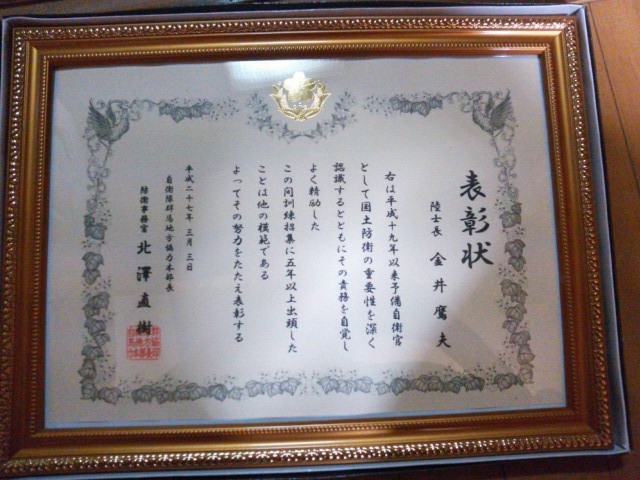 表彰状
陸士長 金井鷹夫
右は平成十九年以来予備自衛官
として国土防衛の重要性を深く
認識するとともにその責務を自覚し
よく精励した
この間訓練招集に五年以上出頭した
ことは他の模範である
よってその努力をたたえ表彰する
平成二十七年三月三日
自衛隊群馬地方協力本部長
防衛事務官 北澤直樹